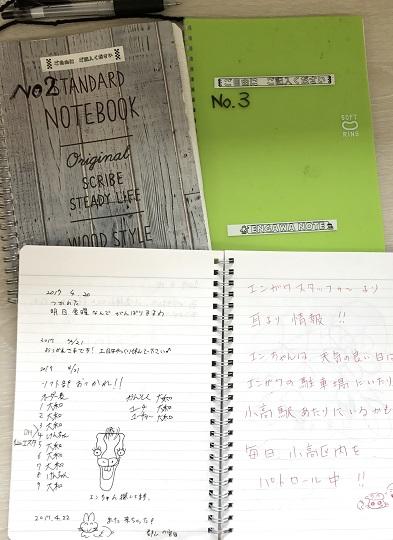 ご自由に ご記入ください
No2
STANDARD
NOTEBOOK
Original
SCRIBE
STEADY LIFE
WOOD STYLE
ご自由に ご記入ください
No.3
SOFT
RING
ENGAWA NOTE
2017 4.20
つかれた
明日 金曜 なんで がんばりますわ
2017 4/21
おつかれさまです! 土日はゆっくり休んで下さい
2017 4/21
ソフト部 おつかれ!!
オーダー表
1 大和
2 大和
3 大和
4 けんちゃん
5 大和
6 大和
7 大和
8 けんちゃん
9 大和
かんとく 大和
コーチ 大和
エンちゃん探してます。
2017.4.22
また 来ちゃった
エンガワスタッフ〜より
耳より 情報 !!
エンちゃんは 天気の良い日は
エンガワの 駐車場にいたり
小高駅あたりにいるかも
毎日 小高区内を
パトロール中 !!